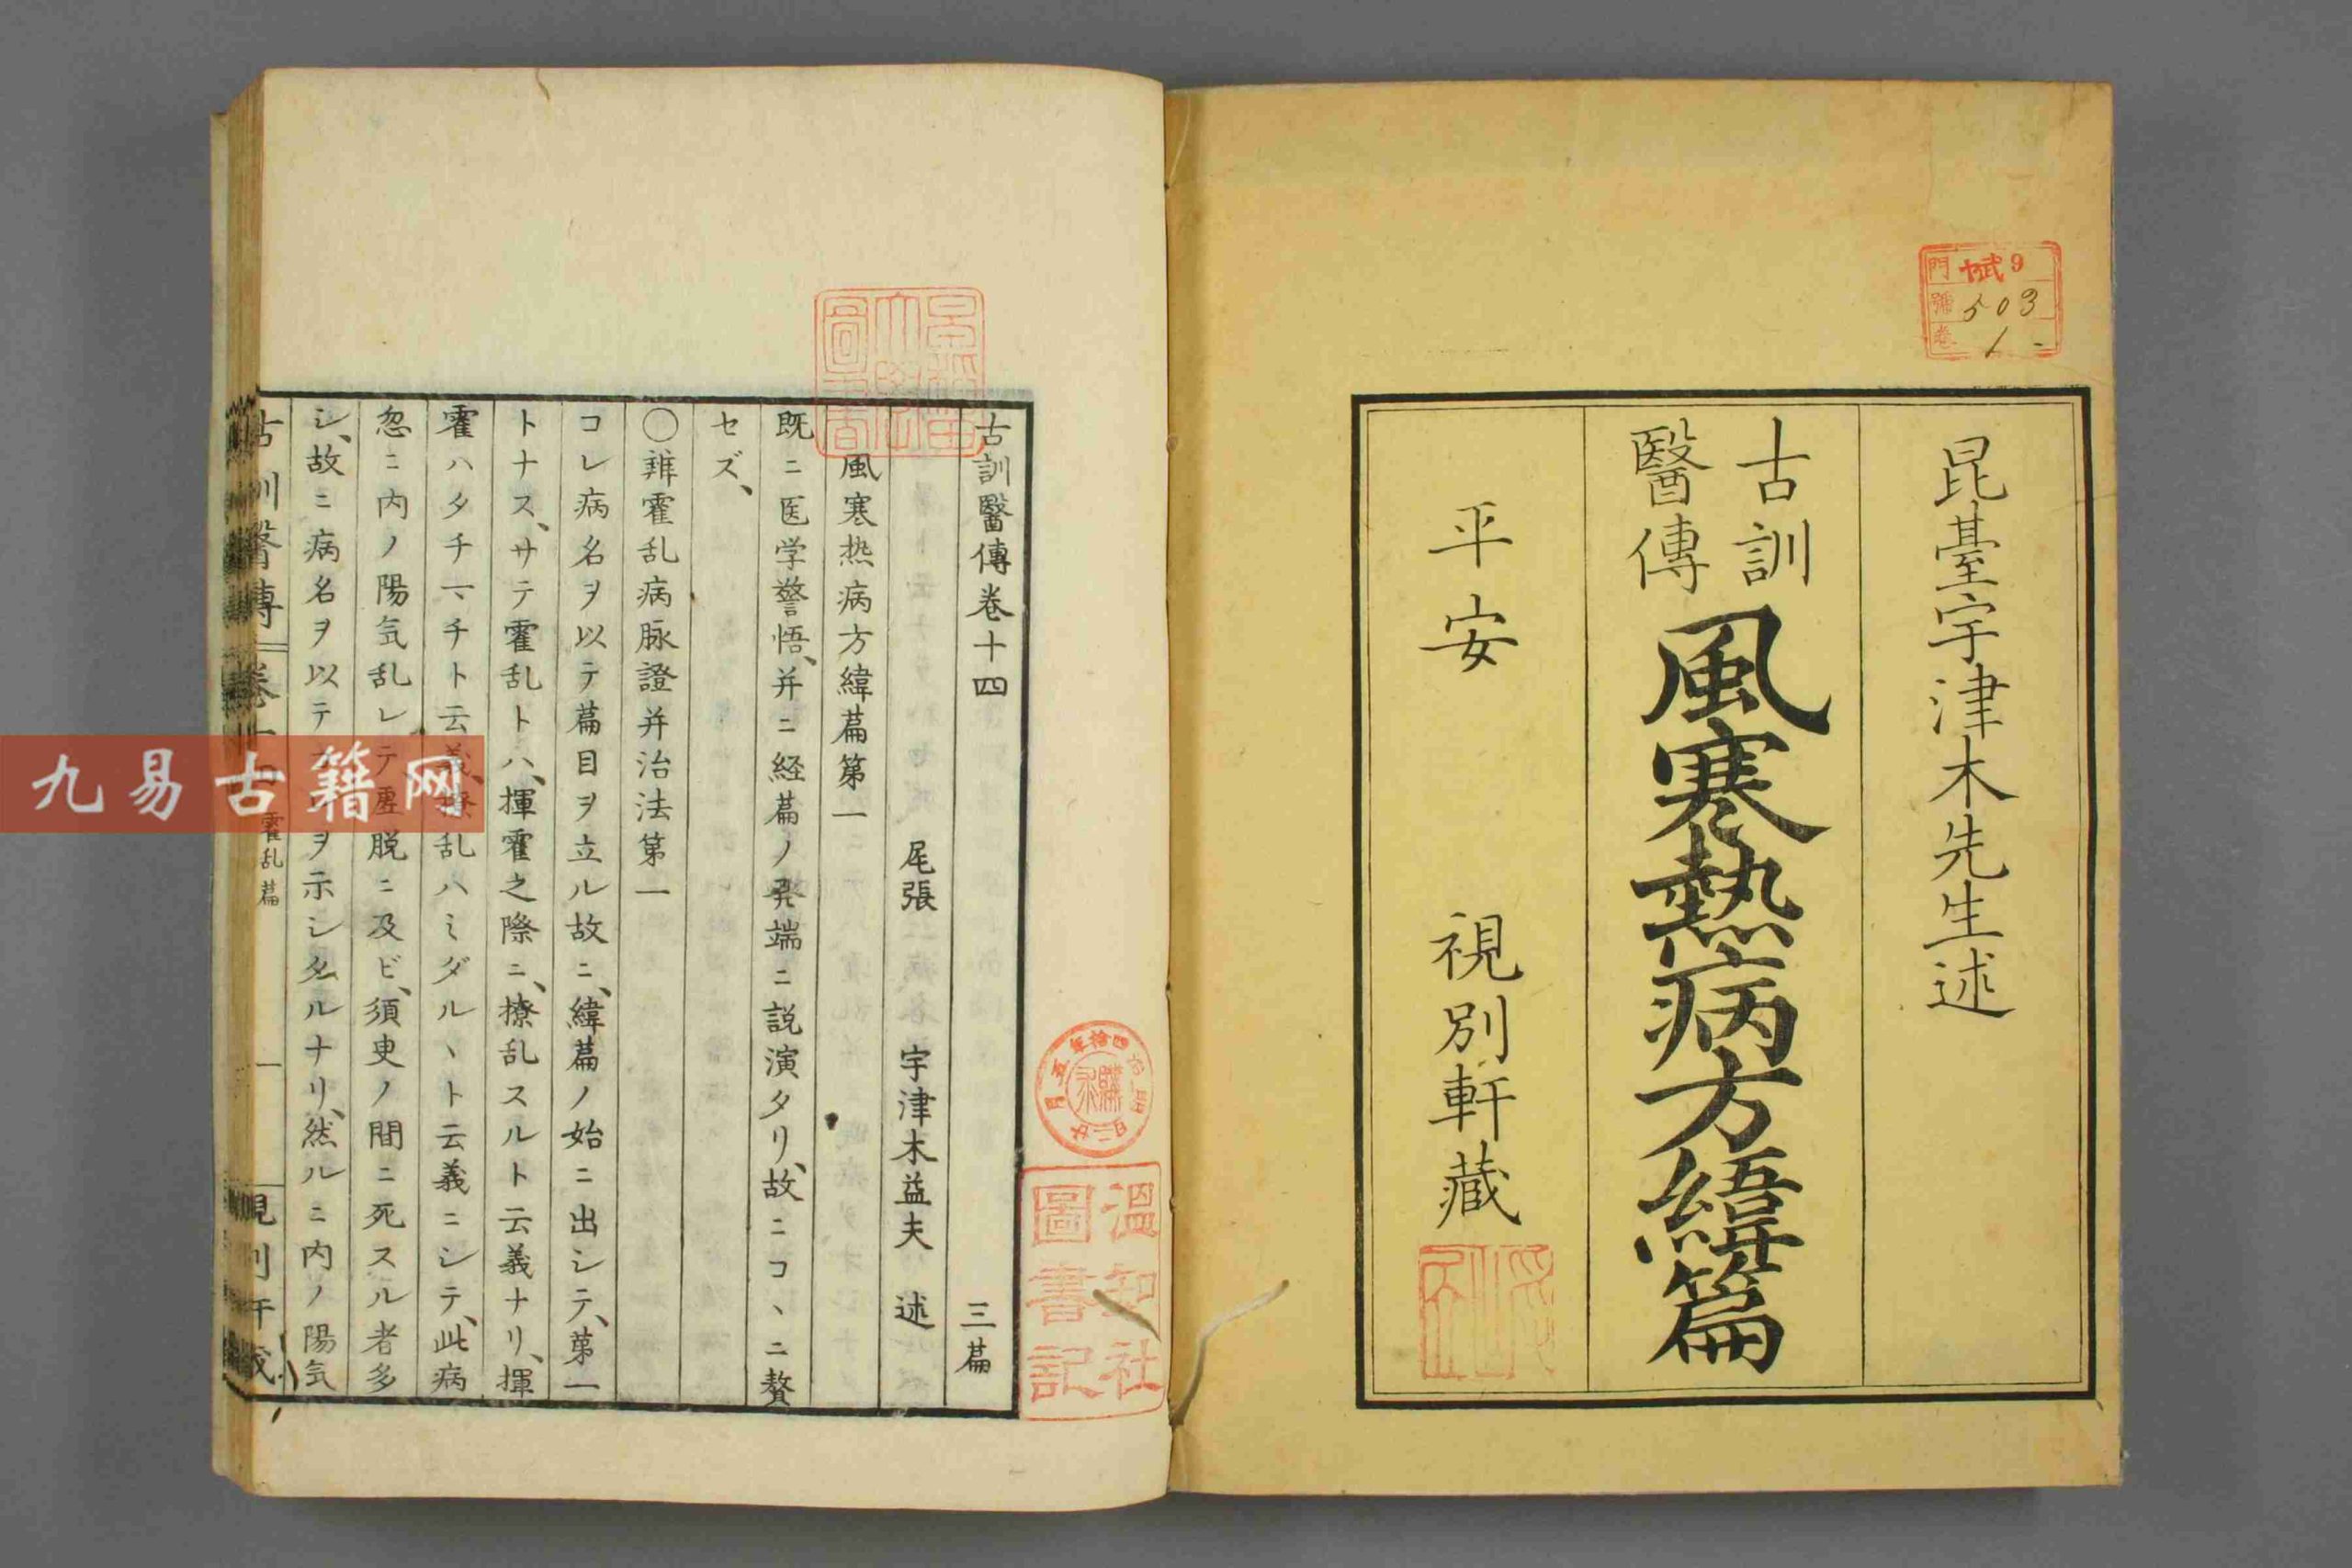 昆臺宇津木先生述
古訓
醫傳
風寒熱病方緯篇
平安 視別軒藏
門 9
號 503
卷 1
古訓醫傳卷十四 三篇
尾張 宇津木益夫 述
風寒热病方緯篇第一
既ニ医学警悟、并ニ経篇ノ発端ニ説演タリ、故ニコヽニ贅
セズ、
〇辨霍乱病脉證并治法第一
コレ病名ヲ以テ篇目ヲ立ル故ニ、緯篇ノ始ニ出シテ、第一
トナス、サテ霍乱トハ、揮霍之際ニ、撩乱スルト云義ナリ、揮
霍ハタチマチト云義、撩乱ハミダルヽト云義ニシテ、此病
忽ニ内ノ陽気乱レテ、虚脱ニ及ビ、須臾ノ間ニ死スル者多
シ、故ニ病名ヲ以テヲ示シタルナリ、然ルニ内ノ陽気
古訓醫傳 卷十四 霍乱篇 一 視別軒藏
溫知社
圖書記
九易古籍网